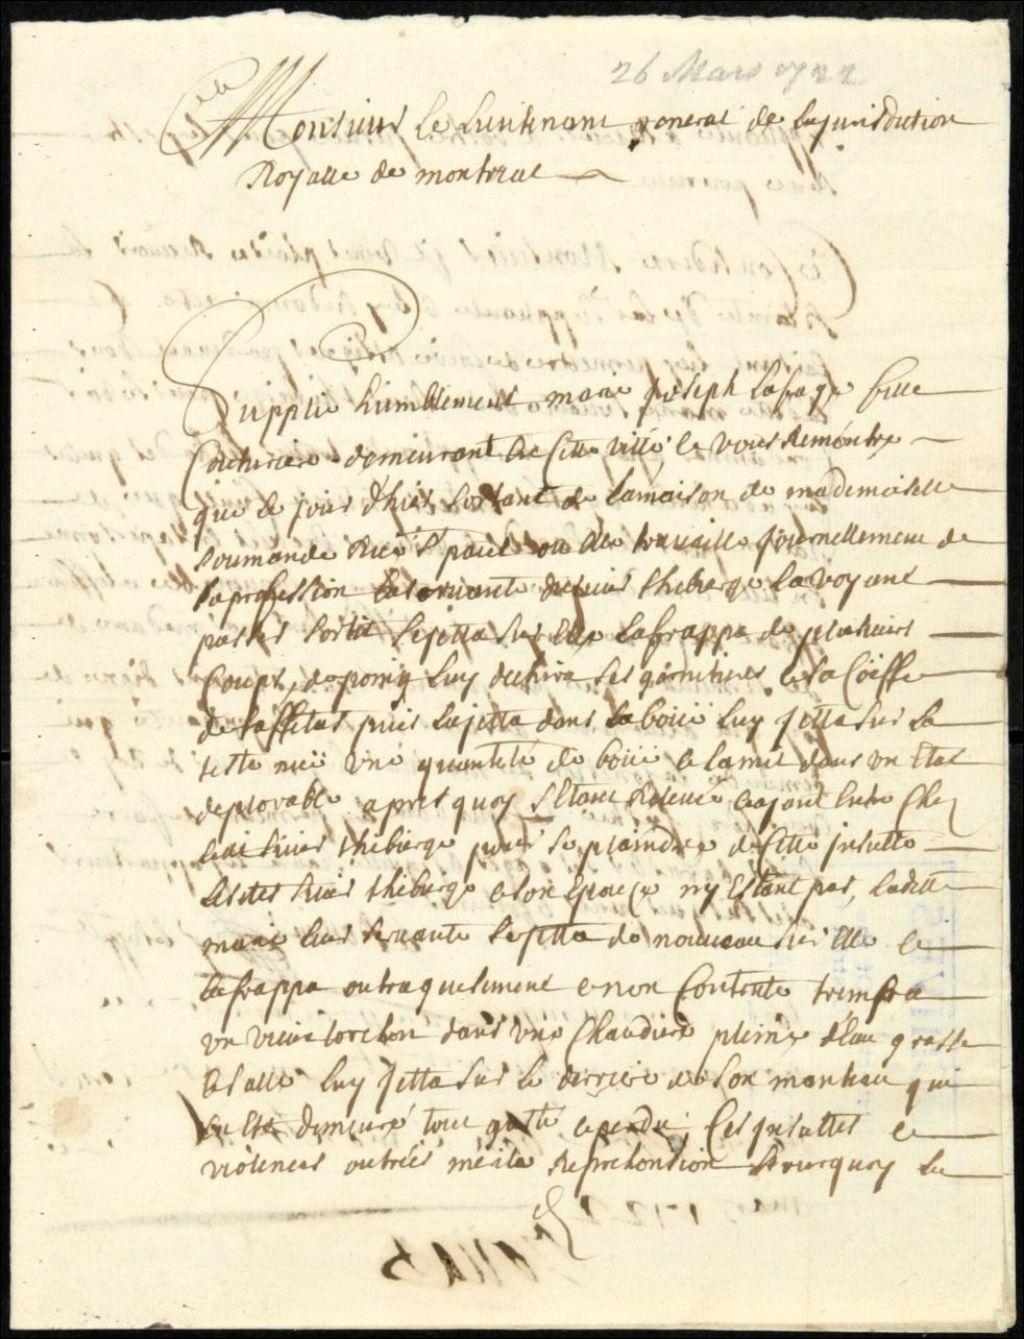 26 Mars 1722
A Monsieur Le Lieutenant general de La jurisdiction
Royalle de montreal
Supplie humblement marie joseph Lafage fille
Couturiere demeurant En Cette ville Et vous Remontre
que le jour d'hier sortant de la maison de mademoiselle
Soumande Rue St paul ou Elle travaille journellement de
sa profession la servante du sieur thiberge La voyant
passer sortit se jetta sur Elle La frappa de plusieurs
Coups de poing Luy dechira ses garnitures Et sa Coiffe
de taffetas puis La jetta dans La boüe Luy jetta sur La
teste nuë une quantité de boüe Et La mit dans un Etat
deplorable apres quoy S'Etant Relevée Et ayant Entré Chez
Ledit sieur thiberge pour se plaindre de Cette jnsulte
Ledit sieur thiberge Et son Epouze ny Estant pas, Ladite
marie Leur servante se jetta de nouveau sur Elle Et
La frappa outrageusement Et non Contente trempa
un vieux torchon dans une Chaudiere pleine d'Eau grasse
Et salle Luy jetta sur Le derriere de son manteau qui
En Est demeuré tout gasté Et perdu, Ces jnsultes Et
violences outrées merite Reprehension Pourquoy La